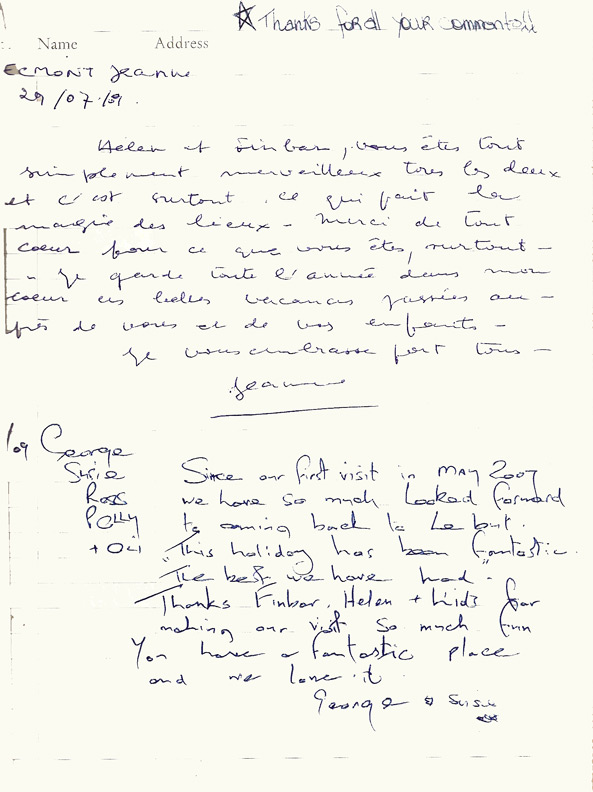 ☆ Thanks for all your comments!!
Name Address
EGMONT Jeanne
29/07/09.
Helen et Finbar, vous êtes tout
simplement merveilleux tous les deux
et c'est surtout ce qui fait la
magie des lieux - Merci de tout
coeur pour ce que vous êtes, surtout -
- Je garde toute l'année dans mon
coeur ces belles vacances passées au -
près de vous et de vos enfants -
Je vous embrasse fort tous -
Jeanne
/09 George
Susie Since our first visit in MAY 2007
Ross we have so much looked forward
POLLY to coming back to Le but.
+ Oli "This holiday has been fantastic.
The best we have had."
Thanks Finbar, Helen + kids for
making our visit so much fun
You have a fantastic place
and we love it.
George & Susie